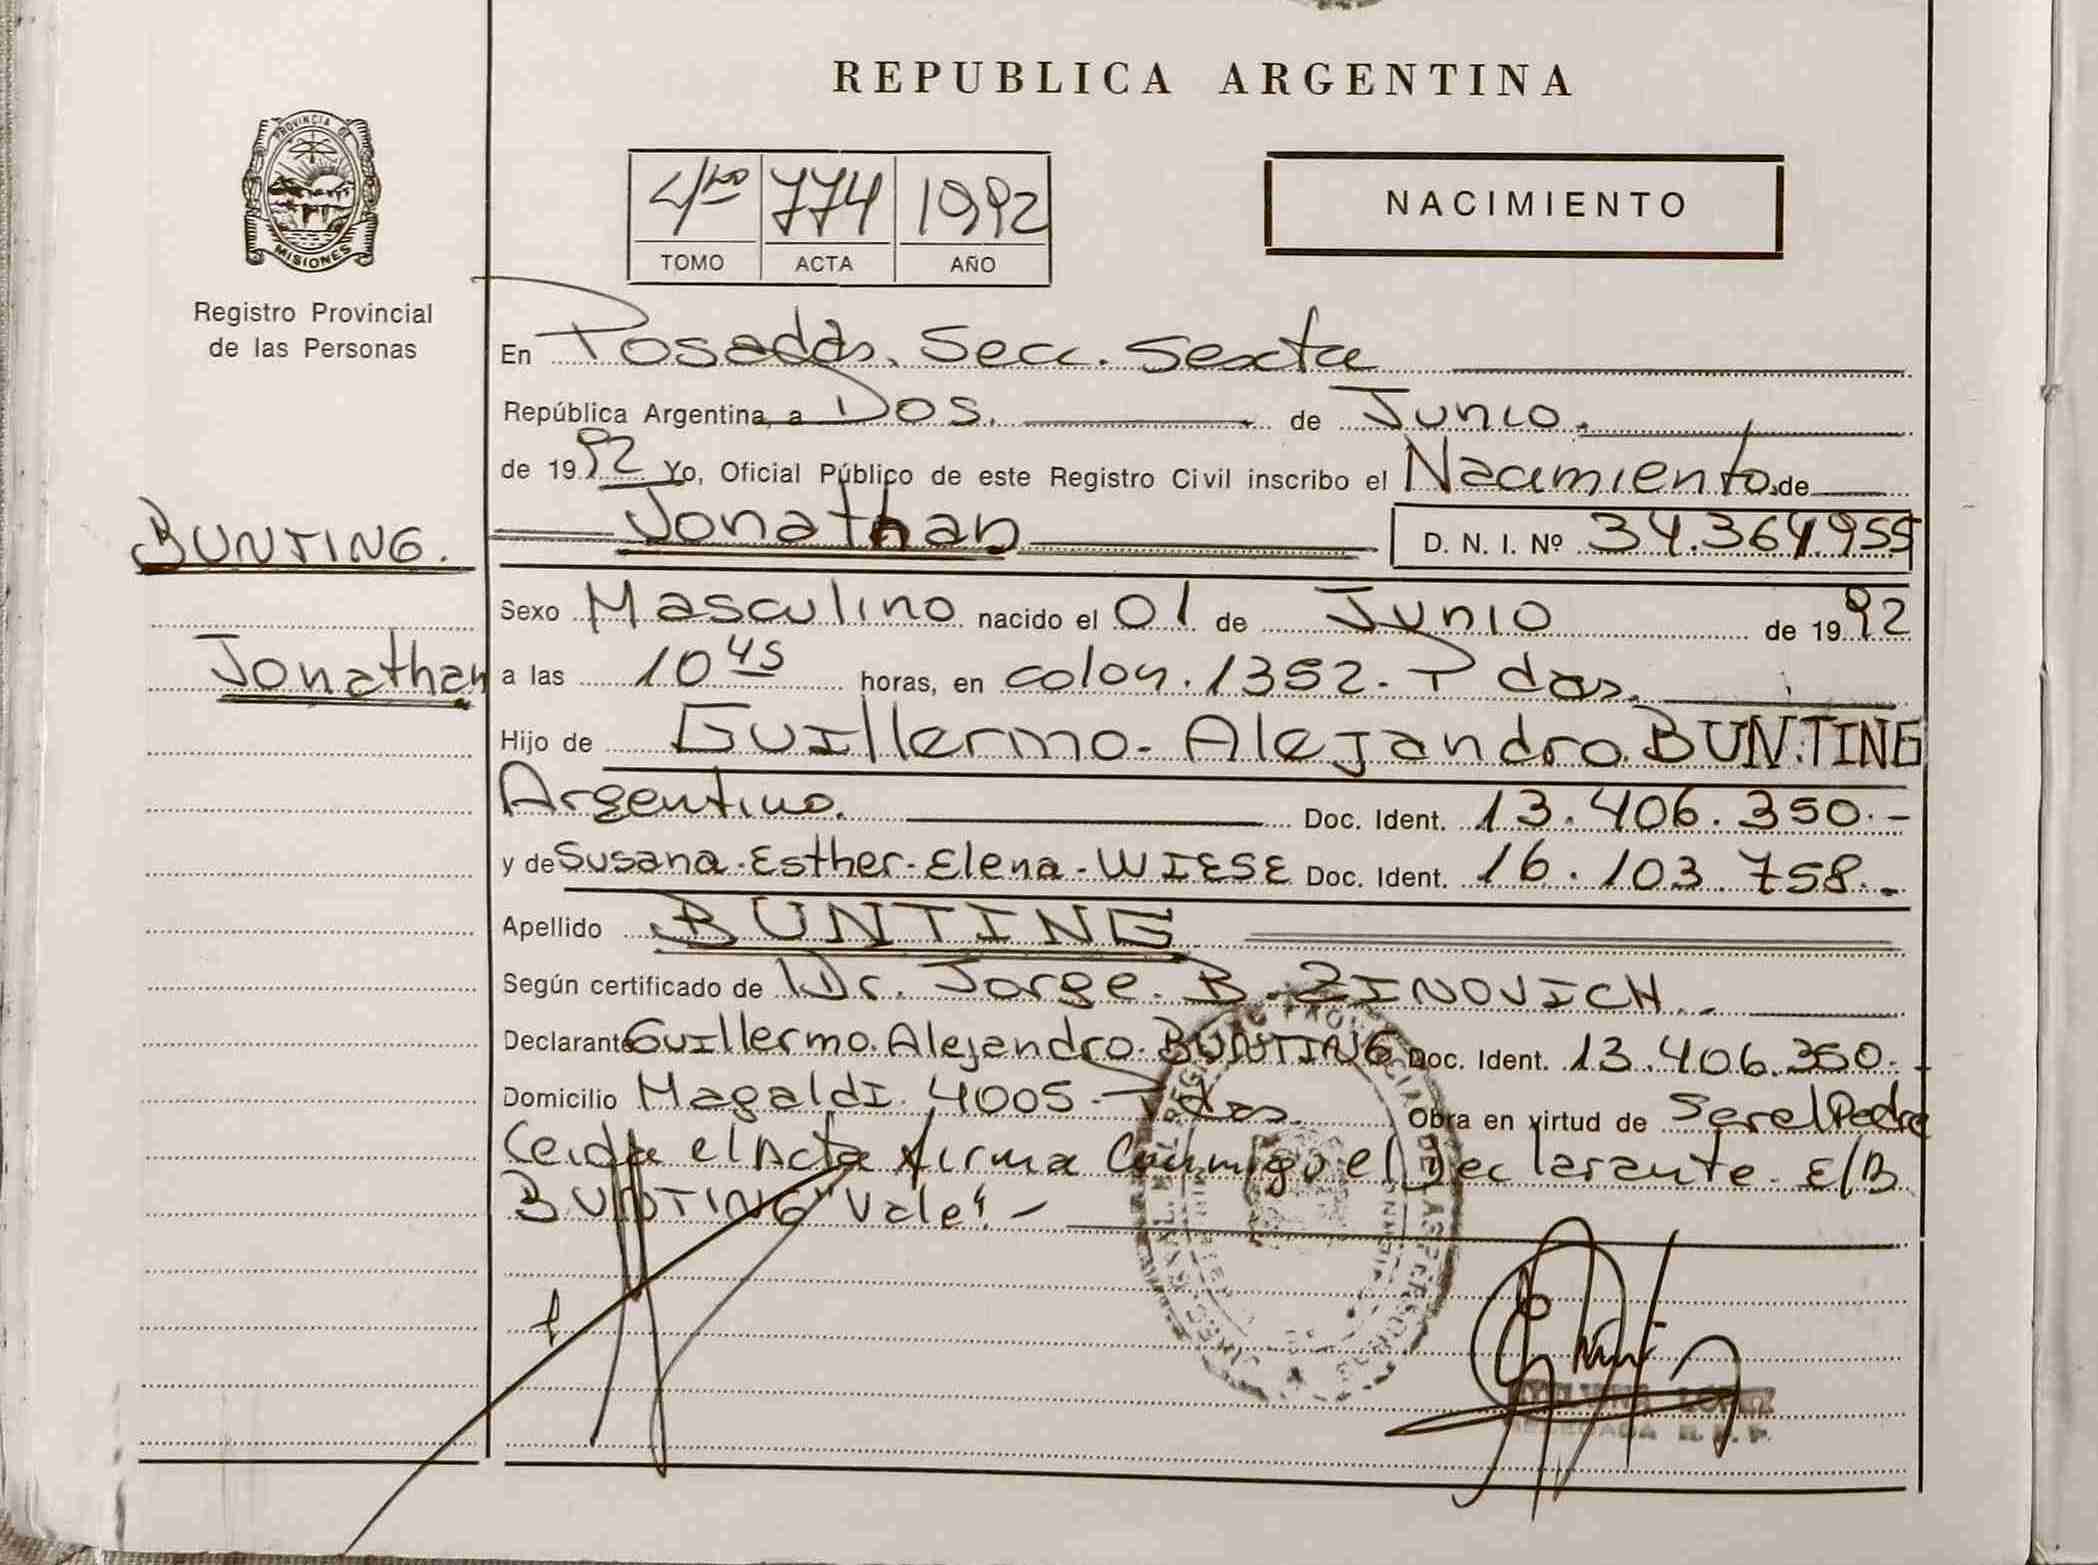 REPUBLICA ARGENTINA
PROVINCIA DE
MISIONES
Registro Provincial
de las Personas
4to 774 1992
TOMO ACTA AÑO
NACIMIENTO
En Posadas. Secc. Sexta
República Argentina, a Dos. de Junio.
de 1992 Yo, Oficial Público de este Registro Civil inscribo el Nacimiento de
BUNTING.
Jonathan D. N. I. Nº 34.364.955
Sexo Masculino nacido el 01 de Junio de 1992
Jonathan
a las 10 45 horas, en colon. 1352. Pdas.
Hijo de Guillermo. Alejandro. BUNTING
Argentino. Doc. Ident. 13.406.350.-
y de Susana. Esther. Elena. WIESE Doc. Ident. 16.103.758.-
Apellido BUNTING
Según certificado de Dr. Jorge. B. ZINOVICH.
Declarante Guillermo. Alejandro. BUNTING Doc. Ident. 13.406.350.-
Domicilio Magaldi. 4005.- Pdas. Obra en virtud de Ser el Padre
Leida el Acta firma Conmigo el Declarante. E/B
BUNTING "Vale".-
LOPEZ
DELEGADA R. P. P.